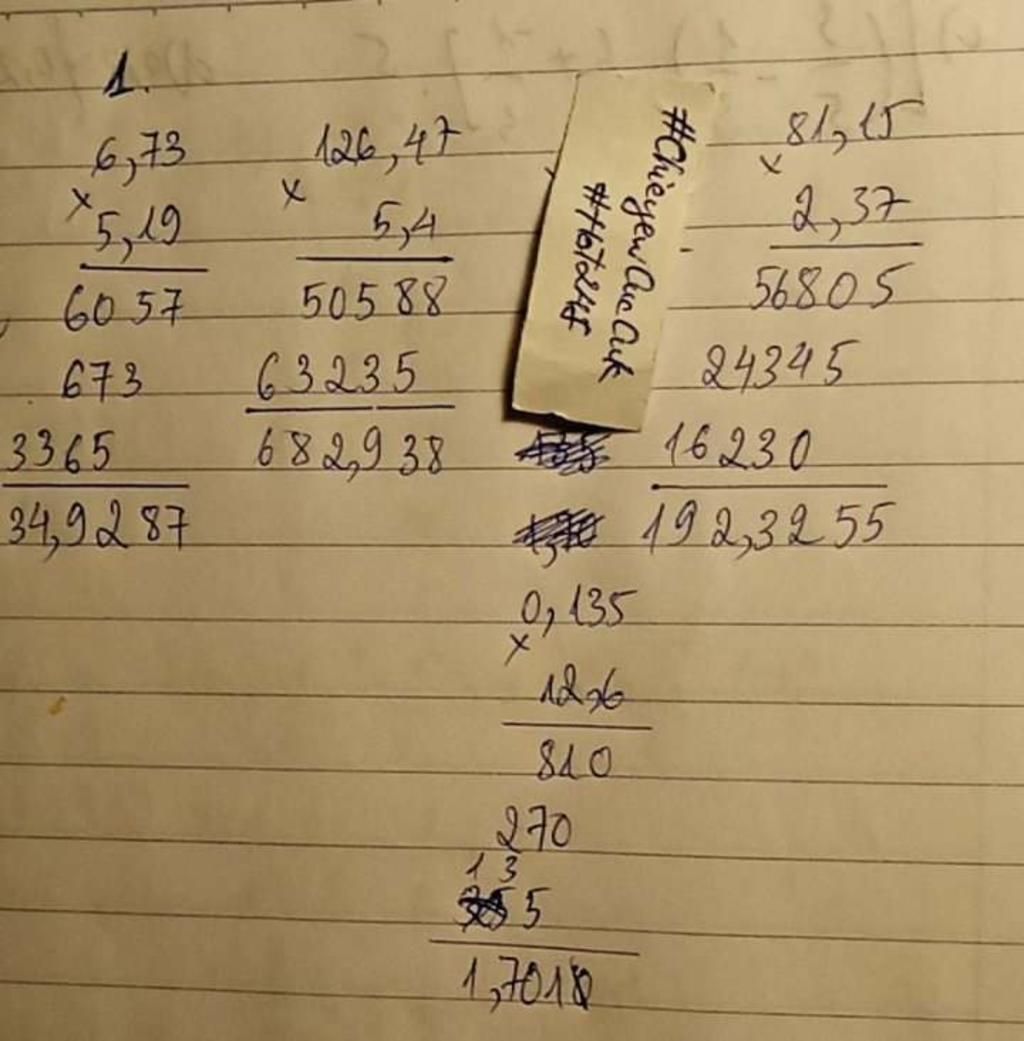 1.
6,73
×
5,19
6057
673
3365
34,9287
126,47
×
5,4
50588
63235
682,938
81,15
×
2,37
56805
24345
16230
192,3255
0,135
×
12,6
810
270
13
5
1,7010